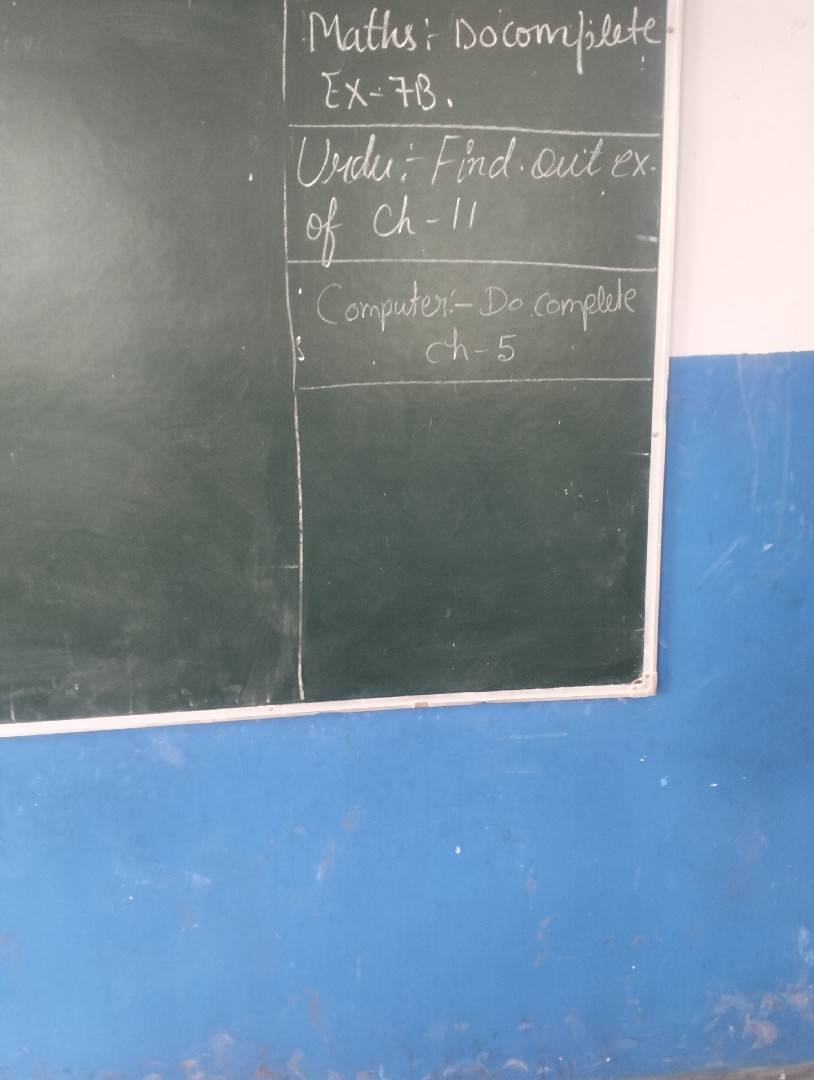 Maths:- Do complete
Ex-7B.
Urdu:- Find out ex.
of Ch-11
Computer:- Do complete
ch-5